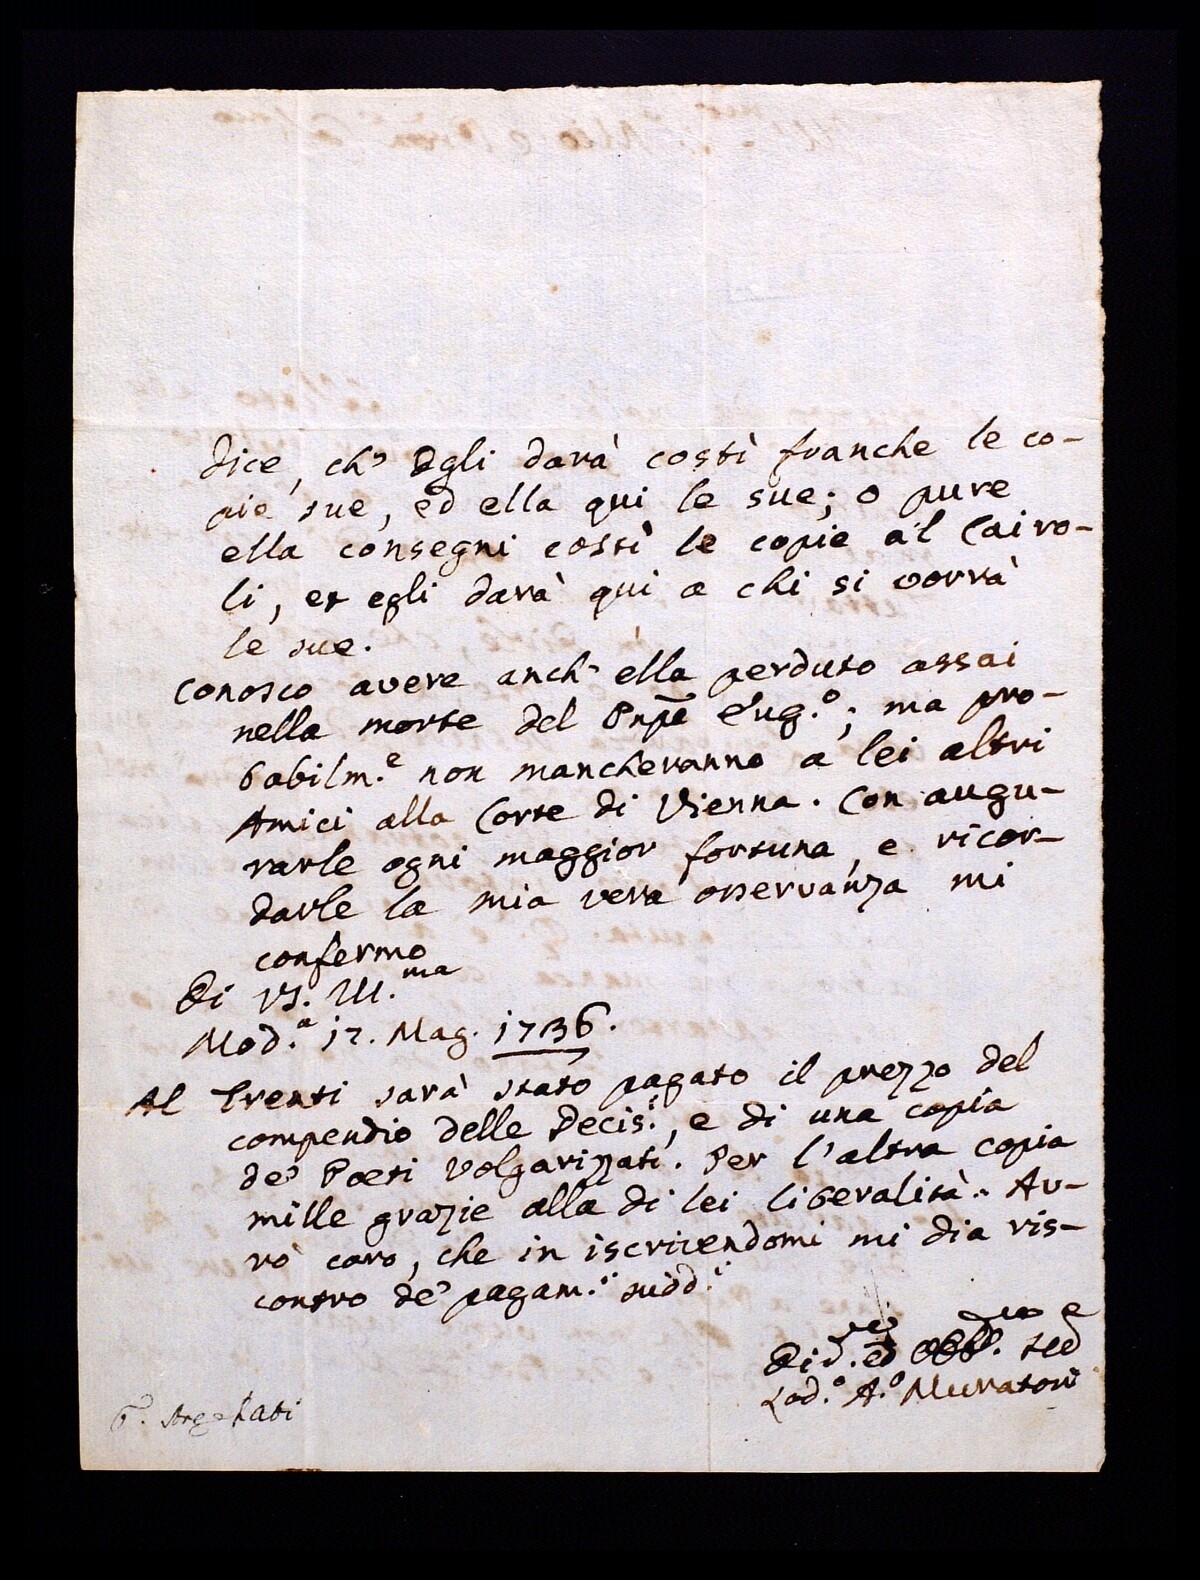 dice, ch' Egli darà costì franche le co-
pie sue, ed ella qui le sue; o pure
ella consegni costì le copie al Cairo-
li, et egli darà qui a chi si vorrà
le sue.
Conosco avere anch' ella perduto assai
nella morte del Pnpe Eug.º; ma pro-
babilm.e non mancheranno a lei altri
Amici alla Corte di Vienna. Con augu-
rarle ogni maggior fortuna, e ricor-
darle la mia vera osservanza mi
confermo
Di VS. Ill.ma
Mod.a 17. Mag. 1736.
Al Trenti sarà stato pagato il prezzo del
compendio delle Decis.i, e di una copia
de' Poeti Volgarizzati. Per l'altra copia
mille grazie alla di lei liberalità. Av-
rò caro, che in iscrivendomi mi dia ris-
contro de' pagam.i sudd.i
Div.mo ed Obb.mo Ser.e
Lod.º A.º Muratori
Argelati